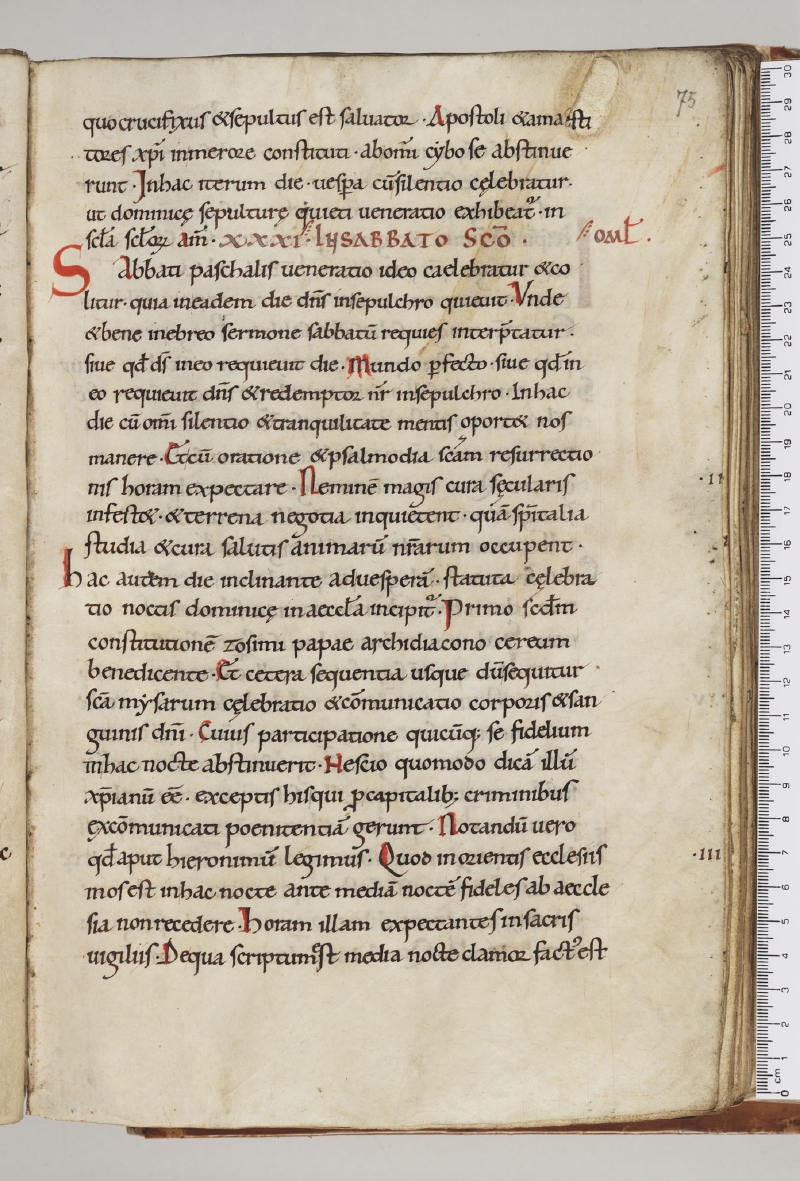 75
quo crucifixus &sepultus est saluator · Apostoli &ama
tores xp̄i inmerore constituti · abom̄i cybo se abstinue
runt · Inhac iterum die · uesp̄a cū silentio cęlebratur ·
ut dominicę sepulturę quieti ueneratio exhibeat᷑ · in
scl̄a scl̄oꝝ am̄ · XXXI · SABBATO SCŌ · OML̄ .
SAbbati paschalis ueneratio ideo caelebratur &co
litur · quia ineadem die dn̄s insepulchro quieuit · Vnde
&bene inebreo sermone sabbatū requies interp̄tatur ·
siue qd̄ ds̄ ineo requieuit die · Mundo ꝑfecto · siue qd̄ in
eo requieuit dn̄s &redemptor nr̄ insepulchro · Inhac
die cū om̄i silentio &tranquilitate mentis oport& nos
manere · Et cū oratione &psalmodia sc̄am resurrectio
nis horam expectare · Neminē magis cura sęcularis
· 11
infest& · &terrena negotia inquietent · quā sp̄italia
studia &cura salutis animarū nr̄arum occupent ·
hac autem die inclinante aduesperā · statuta cęlebra
tio noctis dominicę inaeccl̄a incipit᷑ · Primo scd̄m
constitutionē zosimi papae archidiacono cereum
benedicente · Et cetera sequentia usque dū sequitur
sc̄a mysarum cęlebratio &cōmunicatio corporis &san
guinis dn̄i · Cuius participatione quicūq; se fidelium
inhac nocte abstinuerit · Nescio quomodo dicā illū
xp̄ianū eē · exceptis hisqui ꝓcapitalib; criminibus
excōmunicati poenitentiā gerunt · Notandū uero
qd̄ aput hieronimū legimus · Quod inorientis ecclesiis
· 111
mos est inhac nocte ante mediā noctē fideles ab aeccle
sia non recedere · horam illam expectantes insacris
uigiliis · Dequa scriptum ē̄st media nocte clamor fact᷒ est